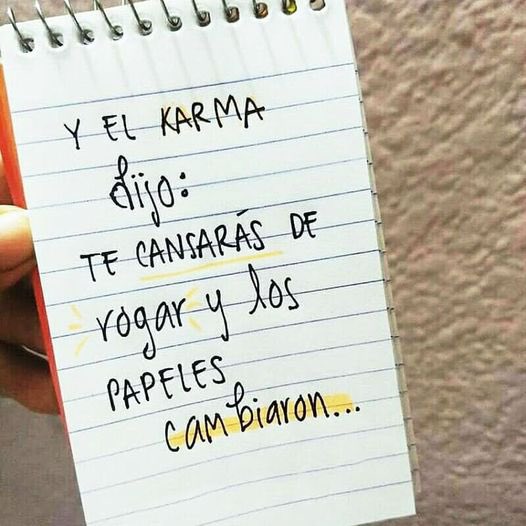 Y EL KARMA
dijo:
TE CANSARÁS DE
rogar y los
PAPELES
cambiaron...